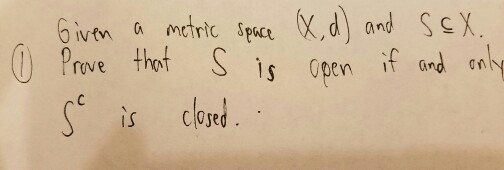 Given a metric space (X,d) and S ⊆ X.
① Prove that S is open if and only
Sᶜ is closed.